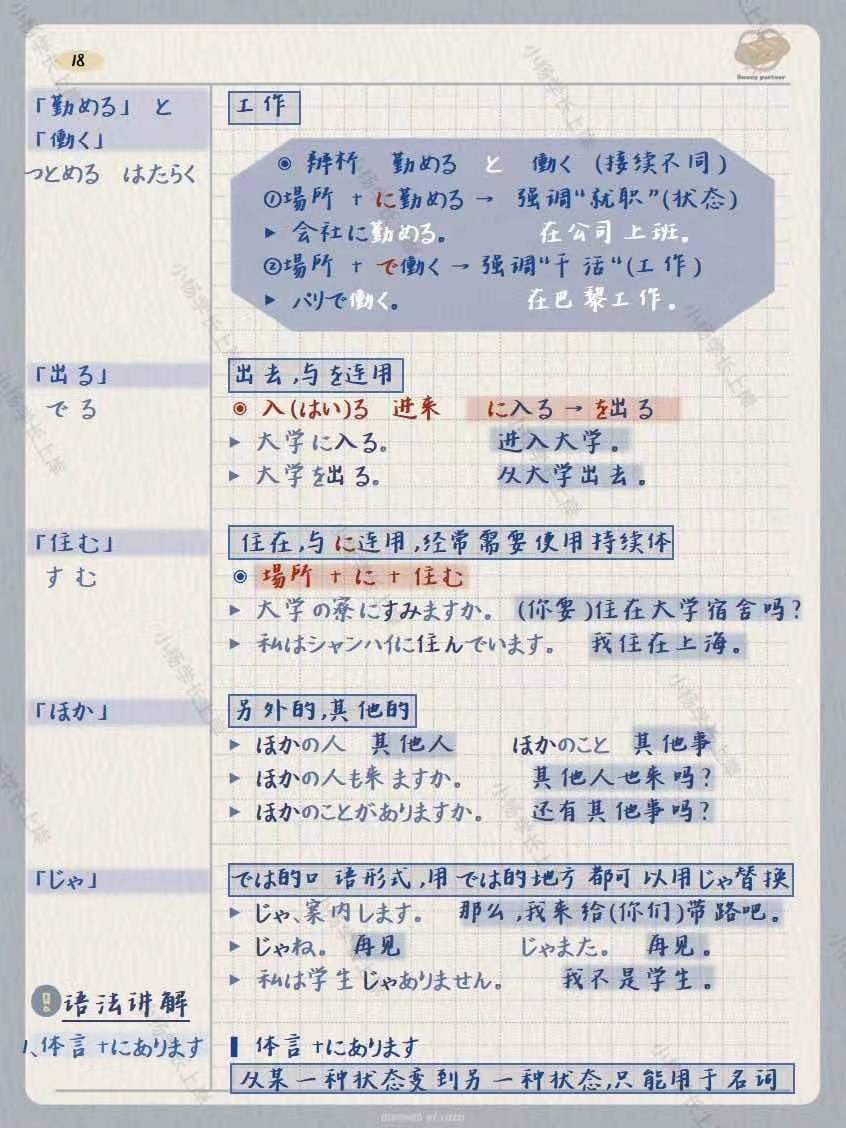 18
Sunny partner
「勤める」 と
「働く」
つとめる はたらく
工作
◉ 辨析 勤める と 働く (接续不同)
①場所 + に勤める → 强调“就职”(状态)
▶ 会社に勤める。 在公司上班。
②場所 + で働く → 强调“干活“(工作)
▶ パリで働く。 在巴黎工作。
「出る」
でる
出去,与を连用
◉ 入(はい)る 进来 に入る → を出る
▶ 大学に入る。 进入大学。
▶ 大学を出る。 从大学出去。
「住む」
すむ
住在,与に连用,经常需要使用持续体
◉ 場所 + に + 住む
▶ 大学の寮にすみますか。 (你要)住在大学宿舍吗?
▶ 私はシャンハイに住んでいます。 我住在上海。
「ほか」
另外的,其他的
▶ ほかの人 其他人 ほかのこと 其他事
▶ ほかの人も来ますか。 其他人也来吗?
▶ ほかのことがありますか。 还有其他事吗?
「じゃ」
では的口语形式,用では的地方都可以用じゃ替换
▶ じゃ、案内します。 那么,我来给(你们)带路吧。
▶ じゃね。 再见 じゃまた。 再见。
▶ 私は学生じゃありません。 我不是学生。
语法讲解
1、体言+にあります
体言+にあります
从某一种状态变到另一种状态,只能用于名词
小杨学长上岸